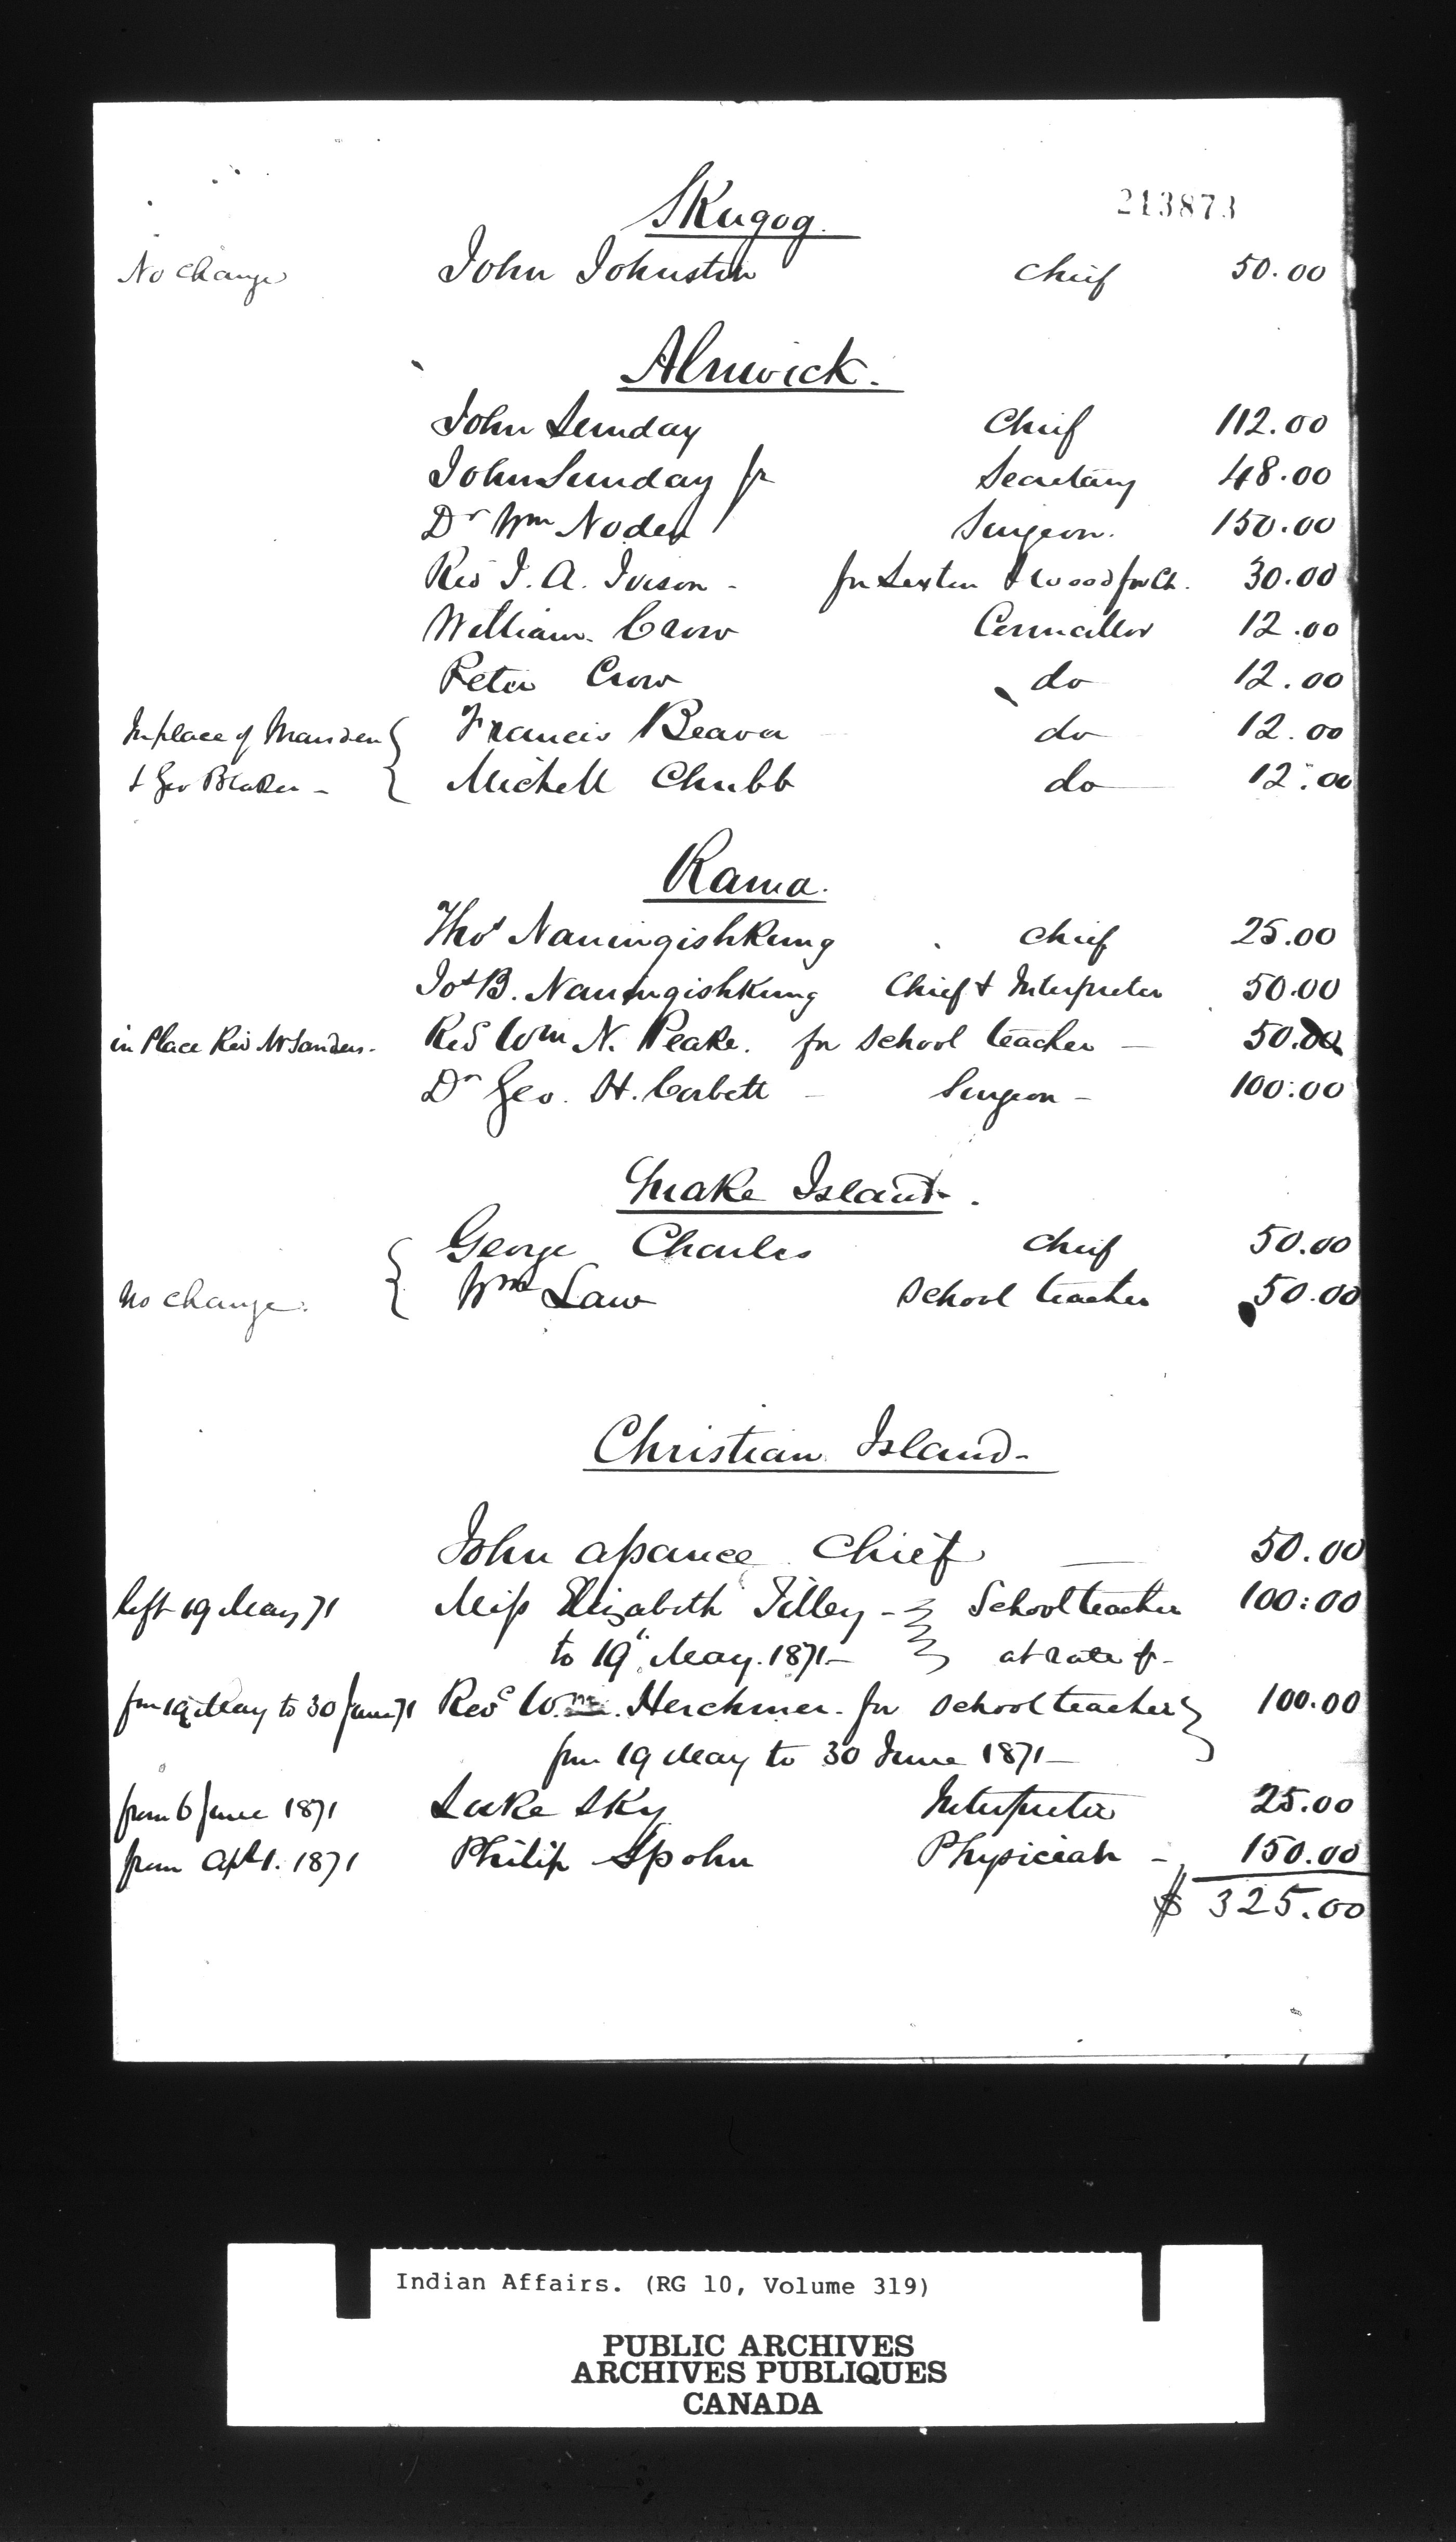 213873
Skugog.
No change John Johnston Chief 50.00
Alnwick.
John Sunday Chief 112.00
John Sunday Jr Secretary 48.00
Dr Wm Noden Surgeon. 150.00
Revd J. A. Iveson - for Sexton & wood for Ch. 30.00
William Crow Councillor 12.00
Peter Crow do 12.00
In place of Marsden Francis Beaver do 12.00
& Geo Blaker - Michell Chubb do 12.00
Rama.
Thos Naningishkung Chief 25.00
Jos B. Naningishkung Chief & Interpreter 50.00
in Place Rev Mr Sanders. Revd Wm N. Peake. for School teacher - 50.00
Dr Geo. H. Corbett - Surgeon - 100.00
Snake Island.
George Charles Chief 50.00
No change. Wm Law School teacher 50.00
Christian Island-
John Apance Chief 50.00
left 19 May 71 Miss Elizabeth Tilley - School teacher 100:00
to 19" May. 1871- at rate of-
from 19 May to 30 June 71 Revd Wm. Herchmer. for School teacher 100.00
from 19 May to 30 June 1871-
from 6 June 1871 Luke Sky Interpreter 25.00
from Apl 1. 1871 Philip Spohn Physician - 150.00
$ 325.00
Indian Affairs. (RG 10, Volume 319)
PUBLIC ARCHIVES
ARCHIVES PUBLIQUES
CANADA